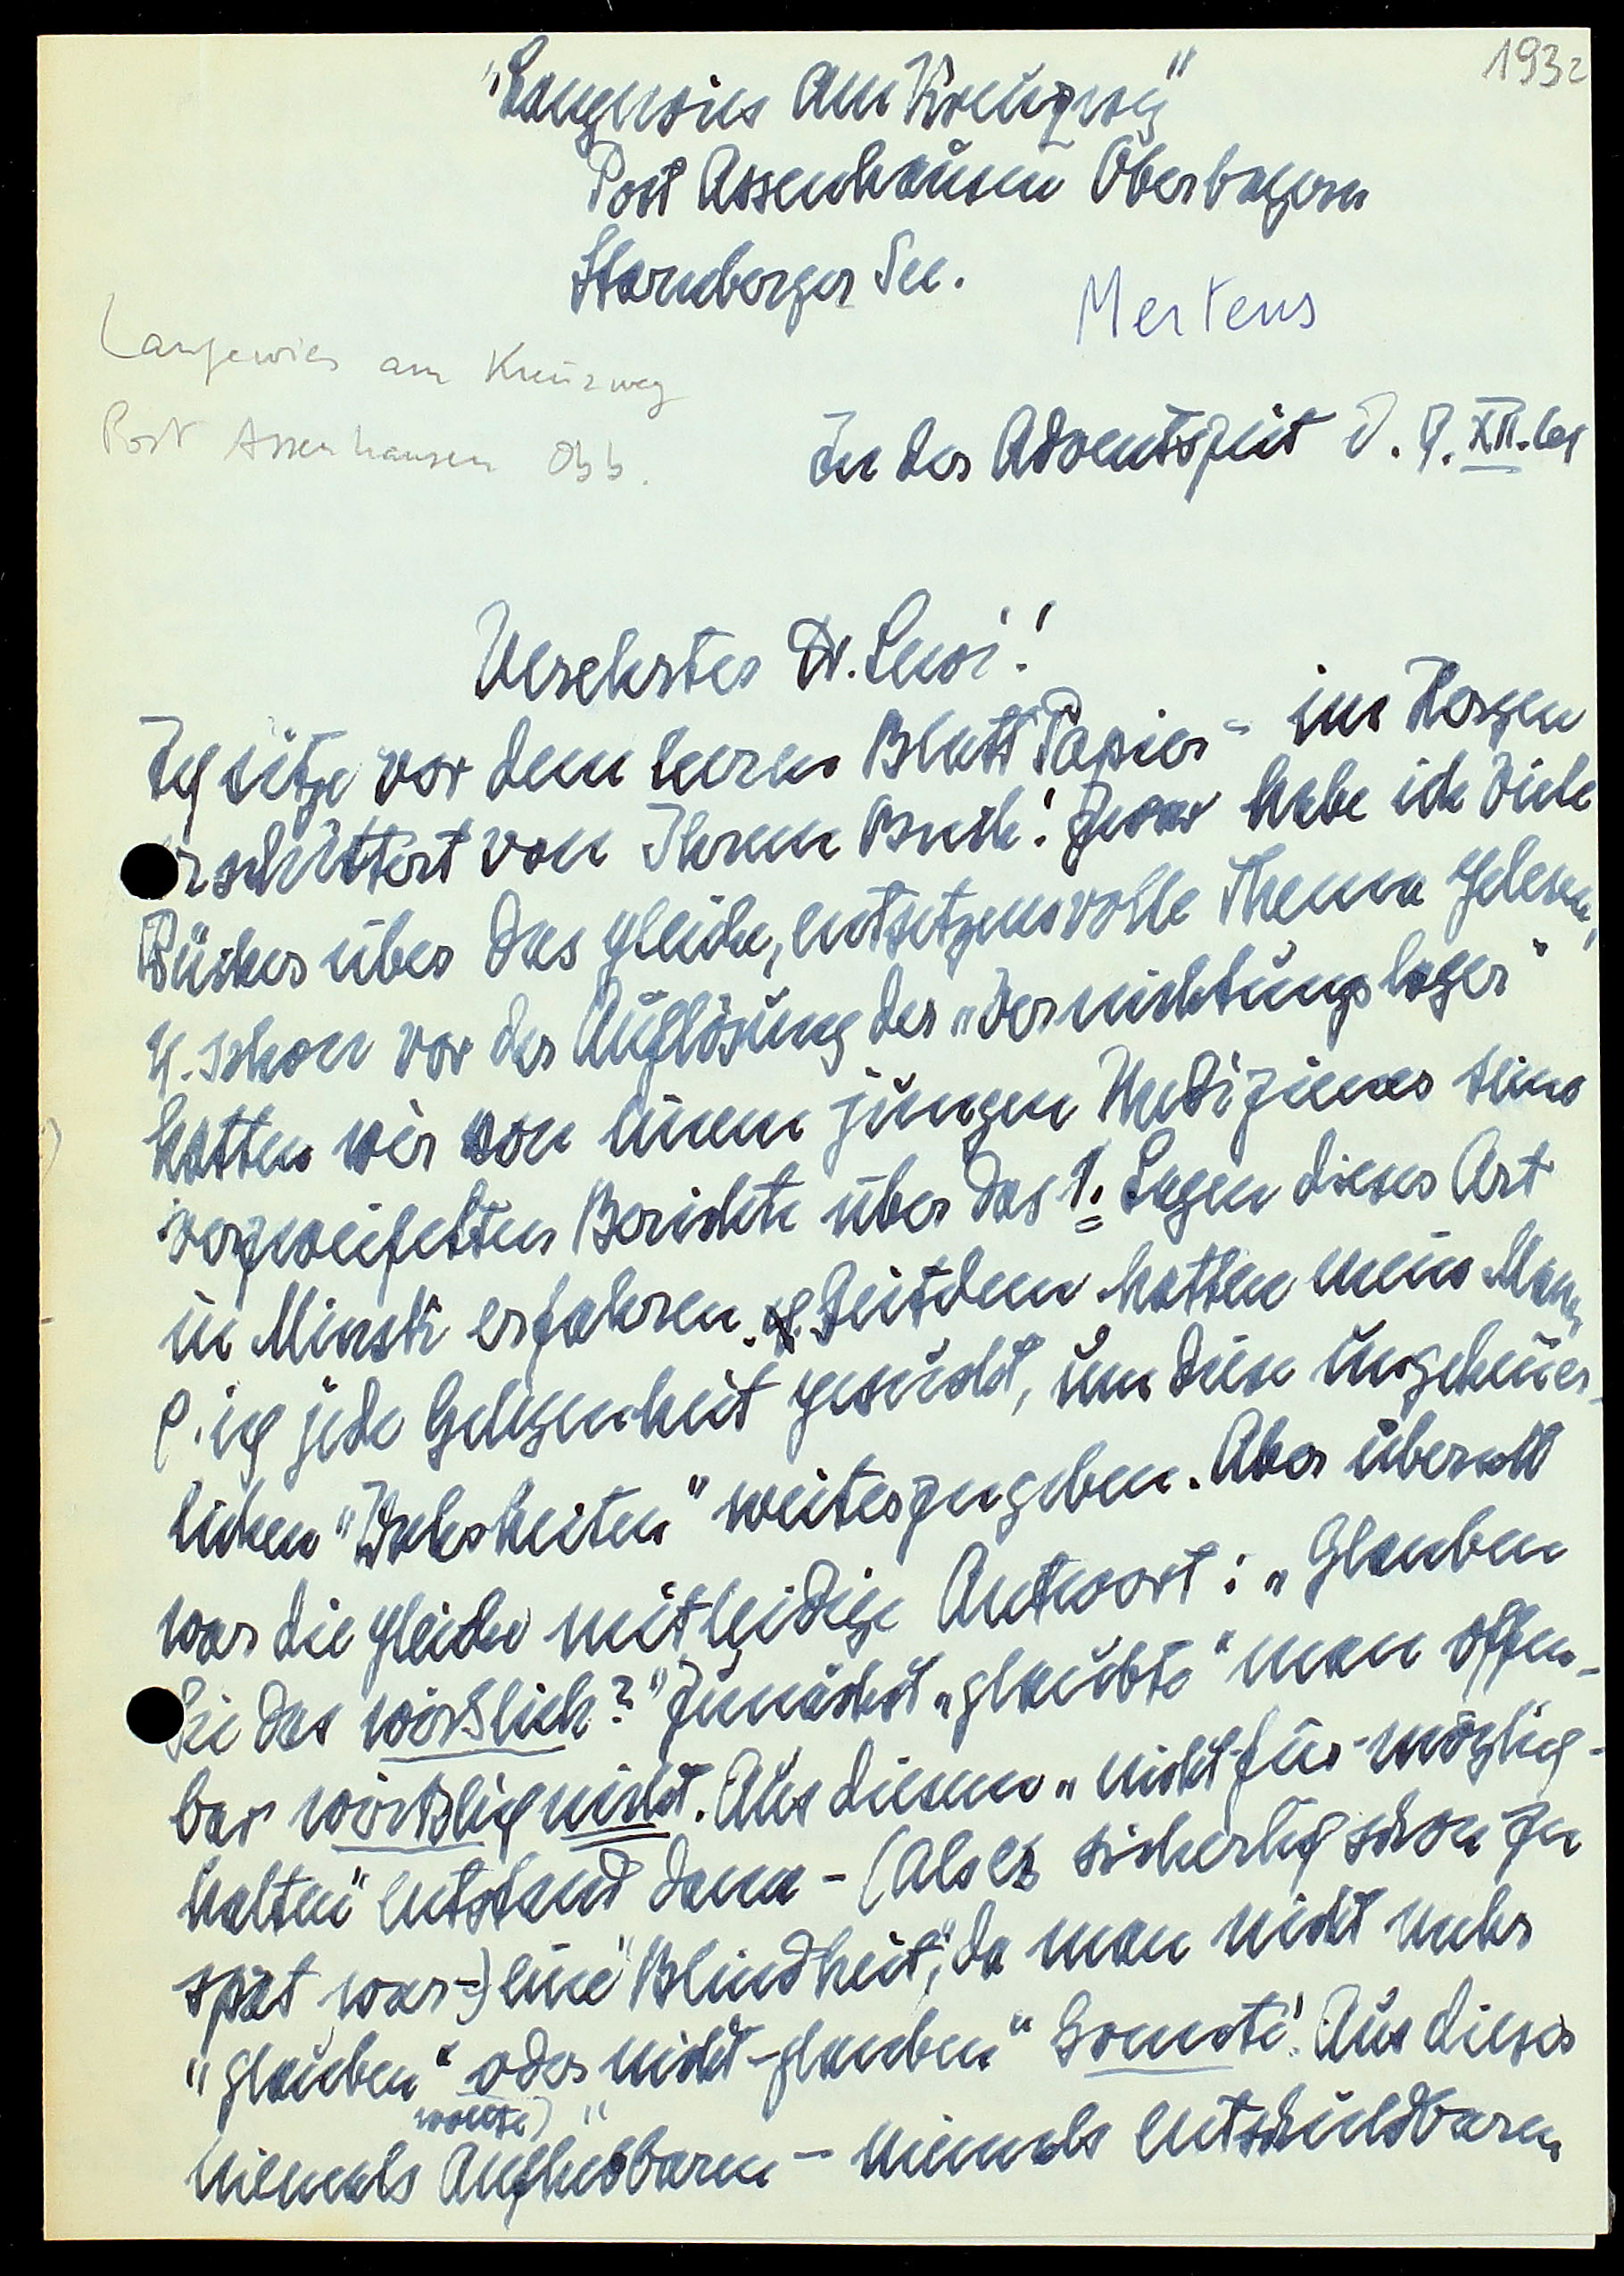 1932
"Langewies am Kreuzweg"
Post Assenhausen Oberbayern
Starnberger See.
Mertens
Langewies am Kreuzweg
Post Assenhausen Obb.
In der Adventszeit d. 9. XII. 61
Verehrter Dr. Lewi!
Ich sitze vor dem leeren Blatt Papier - im Herzen
erschüttert von Ihrem Buch! Zwar habe ich viele
Bücher über das gleiche, entsetzensvolle Thema gelesen,
u. schon vor der Auflösung der "Vernichtungslager"
hatten wir von einem jungen Mediziner seine
verzweifelten Berichte über das 1. Lager dieser Art
in Minsk erfahren. Seitdem hatten mein Mann
u. ich jede Gelegenheit gesucht, um diese ungeheuer-
lichen "Wahrheiten" weiterzugeben. Aber überall
war die gleiche mitleidige Antwort: "Glauben
Sie das wirklich?" Zunächst "glaubte" man offen-
bar wirklich nicht. Aus diesem "nicht-für-möglich-
halten" entstand dann - (als es sicherlich schon zu
spät war-) eine "Blindheit", da man nicht mehr
"glauben" oder nicht-glauben" konnte! Aus dieser
wollte)
niemals Aufhebbaren - niemals entschuldbaren